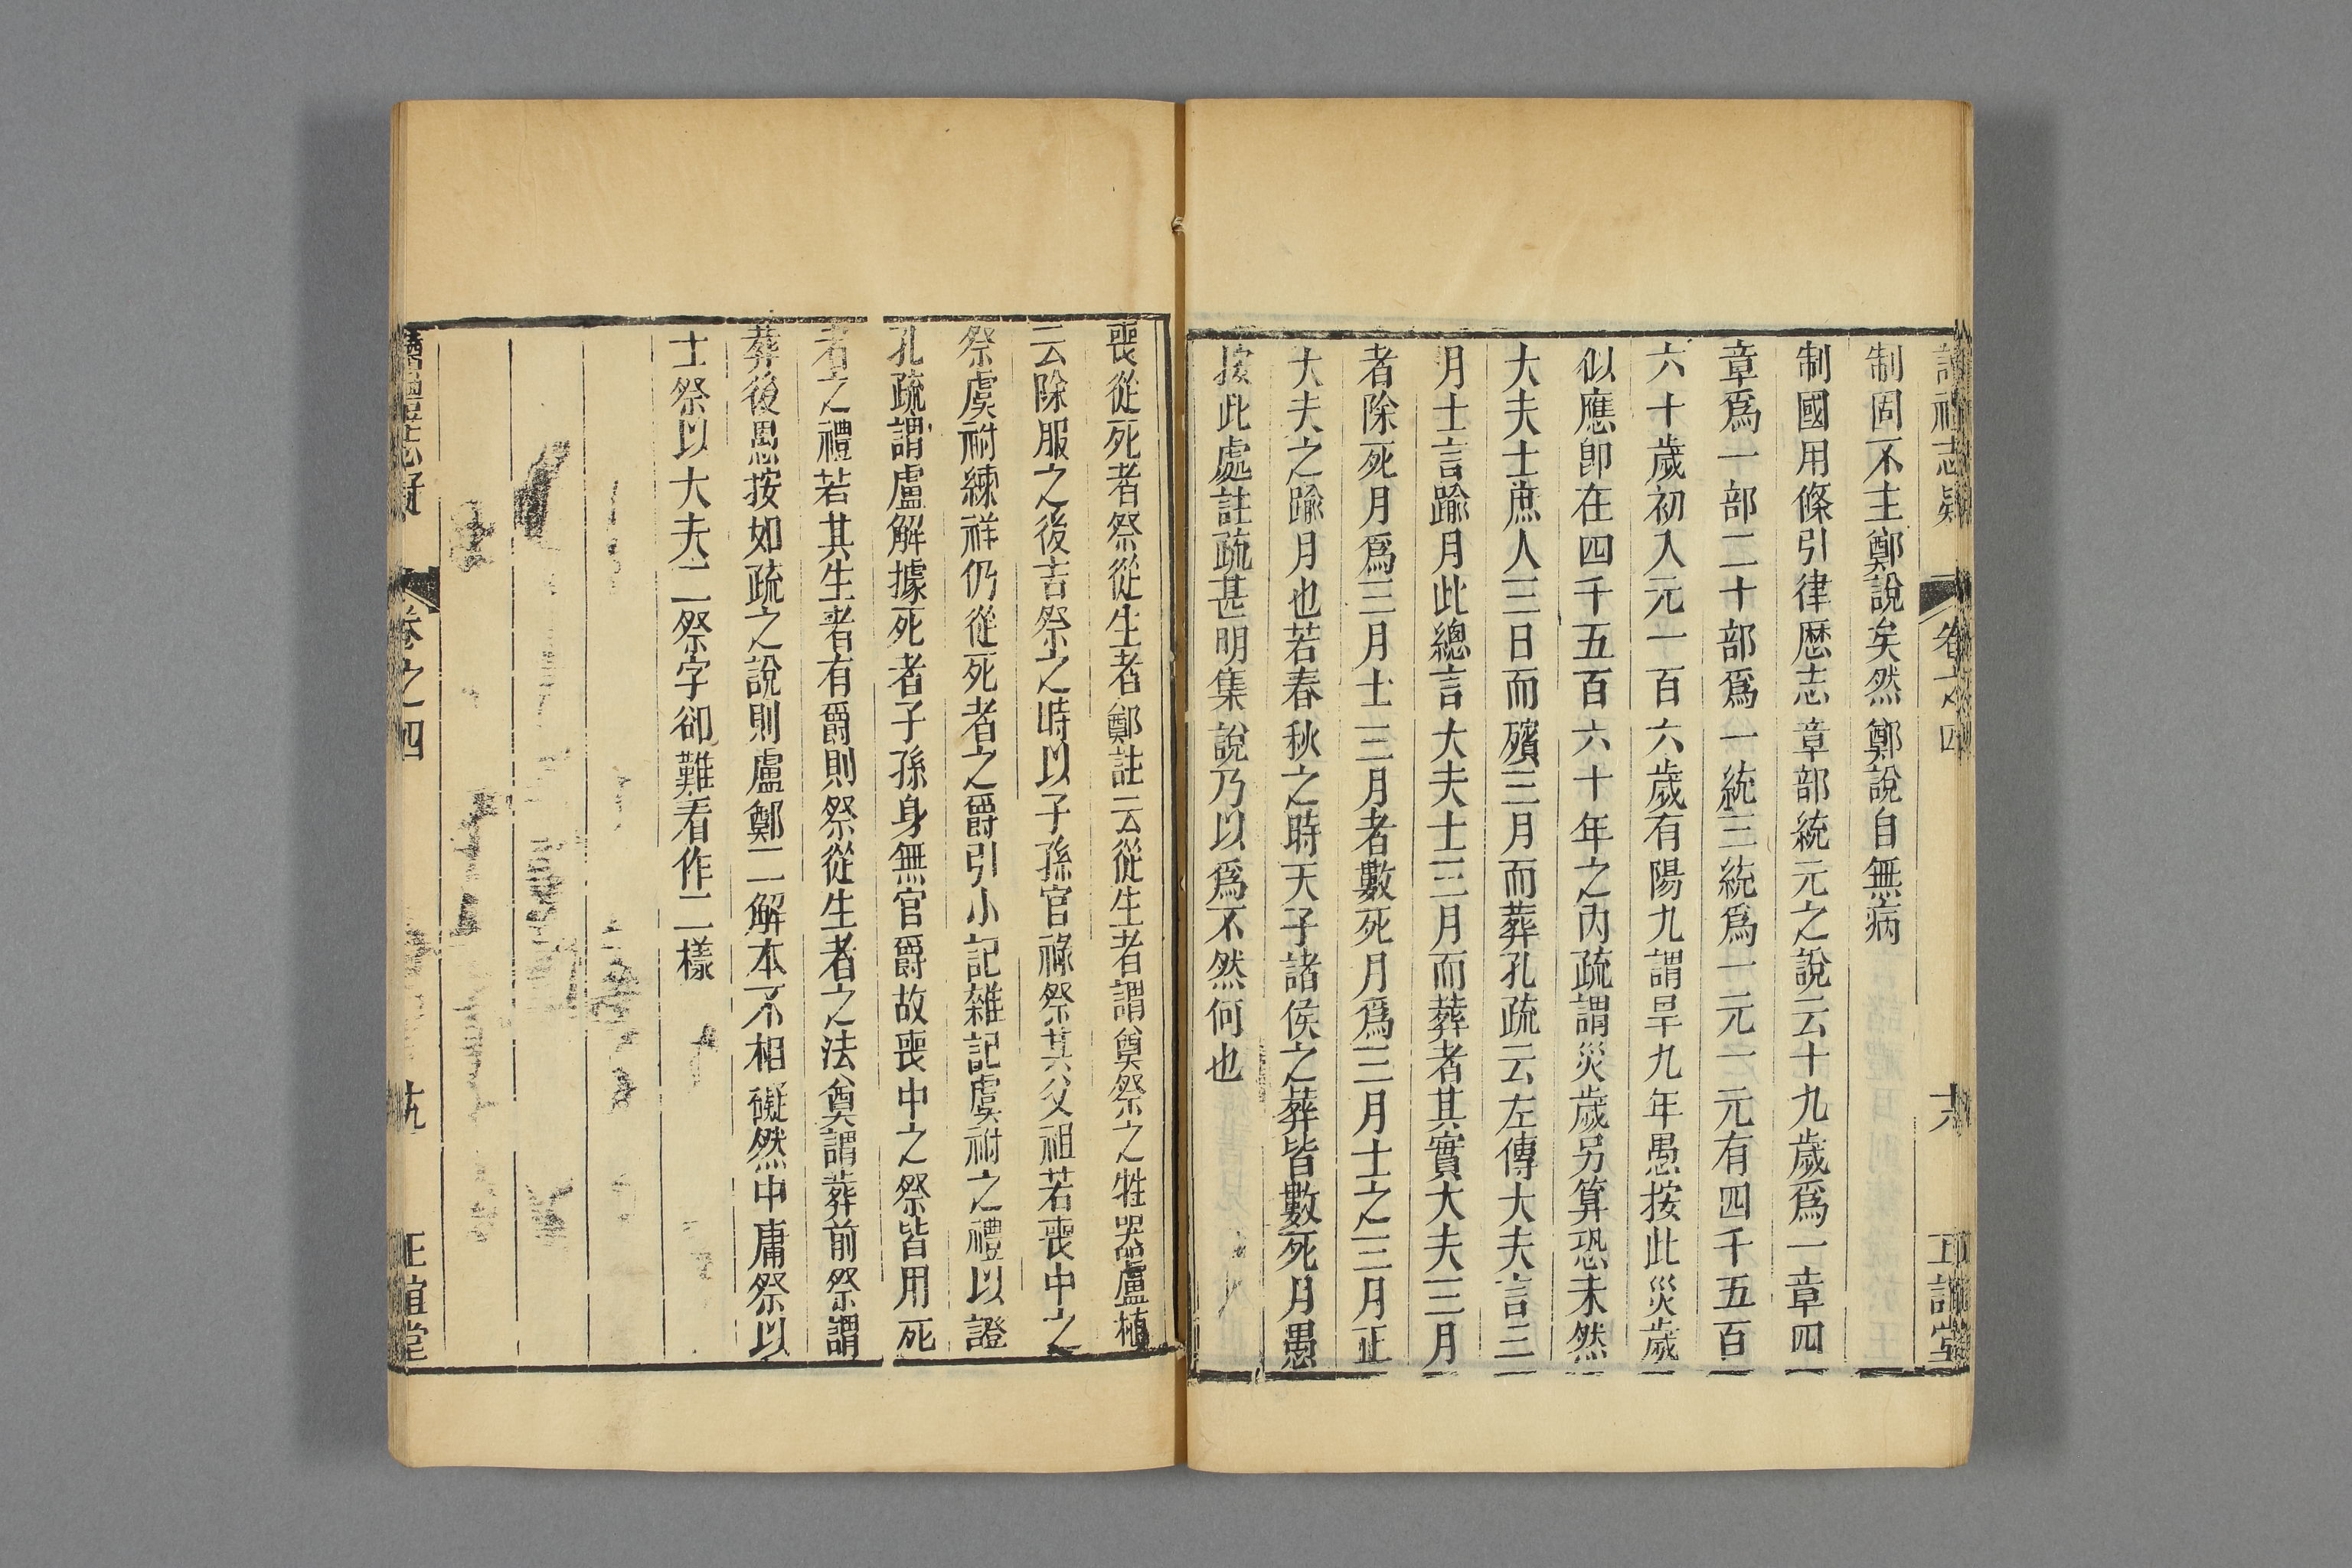 讀禮志疑 卷之四 六 正誼堂
制固不主鄭說矣然鄭說自無病
制國用條引律歷志章部統元之說云十九歲爲一章四
章爲一部二十部爲一統三統爲一元一元有四千五百
六十歲初入元一百六歲有陽九謂旱九年愚按此災歲
似應卽在四千五百六十年之內疏謂災歲另算恐未然
大夫士庶人三日而殯三月而葬孔疏云左傳大夫言三
月士言踰月此總言大夫士三月而葬者其實大夫三月
者除死月爲三月士三月者數死月爲三月士之三月正
大夫之踰月也若春秋之時天子諸侯之葬皆數死月愚
按此處註疏甚明集說乃以爲不然何也
喪從死者祭從生者鄭註云從生者謂奠祭之牲器盧植
云除服之後吉祭之時以子孫官祿祭其父祖若喪中之
祭虞祔練祥仍從死者之爵引小記雜記虞祔之禮以證
孔疏謂盧解據死者子孫身無官爵故喪中之祭皆用死
者之禮若其生者有爵則祭從生者之法奠謂葬前祭謂
葬後愚按如疏之說則盧鄭二解本不相礙然中庸祭以
士祭以大夫二祭字卻難看作二樣
讀禮志疑 卷之四 正誼堂